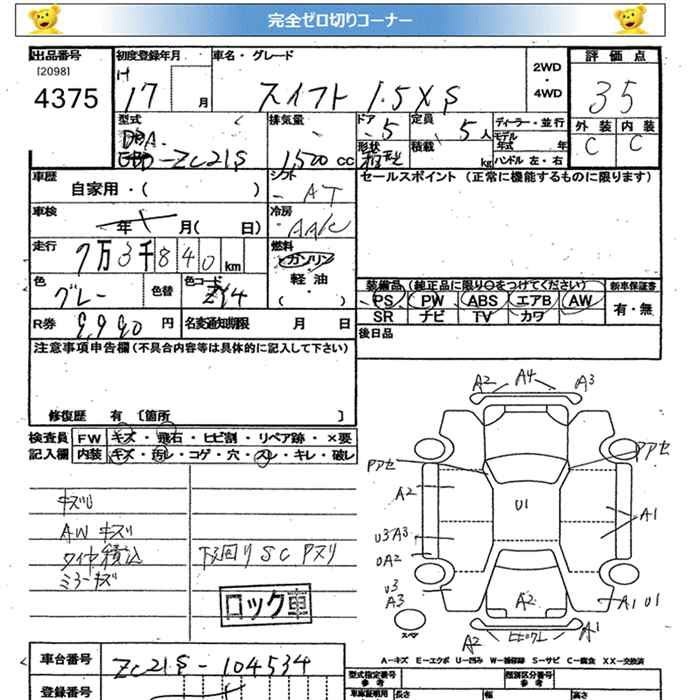 完全ゼロ切りコーナー
出品番号 初度登録年月 車名・グレード 2WD・4WD 評価点
[2098]
4375 H 17 月 スイフト 1.5XS 35
型式 排気量 ドア 5 定員 5人 ディーラー・並行 外装 内装
DBA-ZC21S 1500cc 形状 箱型 積載 kg モデル年式 年 C C
ハンドル 左・右
車歴 シフト セールスポイント (正常に機能するものに限ります)
自家用・( ) AT
車検 冷房
年 月( 日) AAC
走行 燃料
7万3千840km ガソリン
軽油
色 色替 色コード ( )
グレー ZY4
装備品 (純正品に限り〇をつけてください) 新車保証書
PS PW ABS エアB AW 有・無
SR ナビ TV カワ
R券 9,990円 名変通知期限 月 日 後日品
注意事項申告欄(不具合内容等は具体的に記入して下さい)
修復歴 有 〔箇所 〕
検査員 FW キズ・飛石・ヒビ割・リペア跡・×要
記入欄 内装 キズ・汚レ・コゲ・穴・スレ・キレ・破レ
AW キズ
タイヤ積込 下廻りSC Pヌリ
ミラーキズ
ロック車
A2 A4 A3
PアセPアセ
A2 U1 A1
U3 A3
UA2
U3
A3 A2 A1 U1
スペア
A2 A1
A-キズ E-エクボ U-凹み W-補修跡 S-サビ C-腐食 XX-交換済
車台番号 ZC21S-104534
登録番号
型式指定番号 参考 類別区分番号 参考
車庫証明用 長さ 幅 高さ